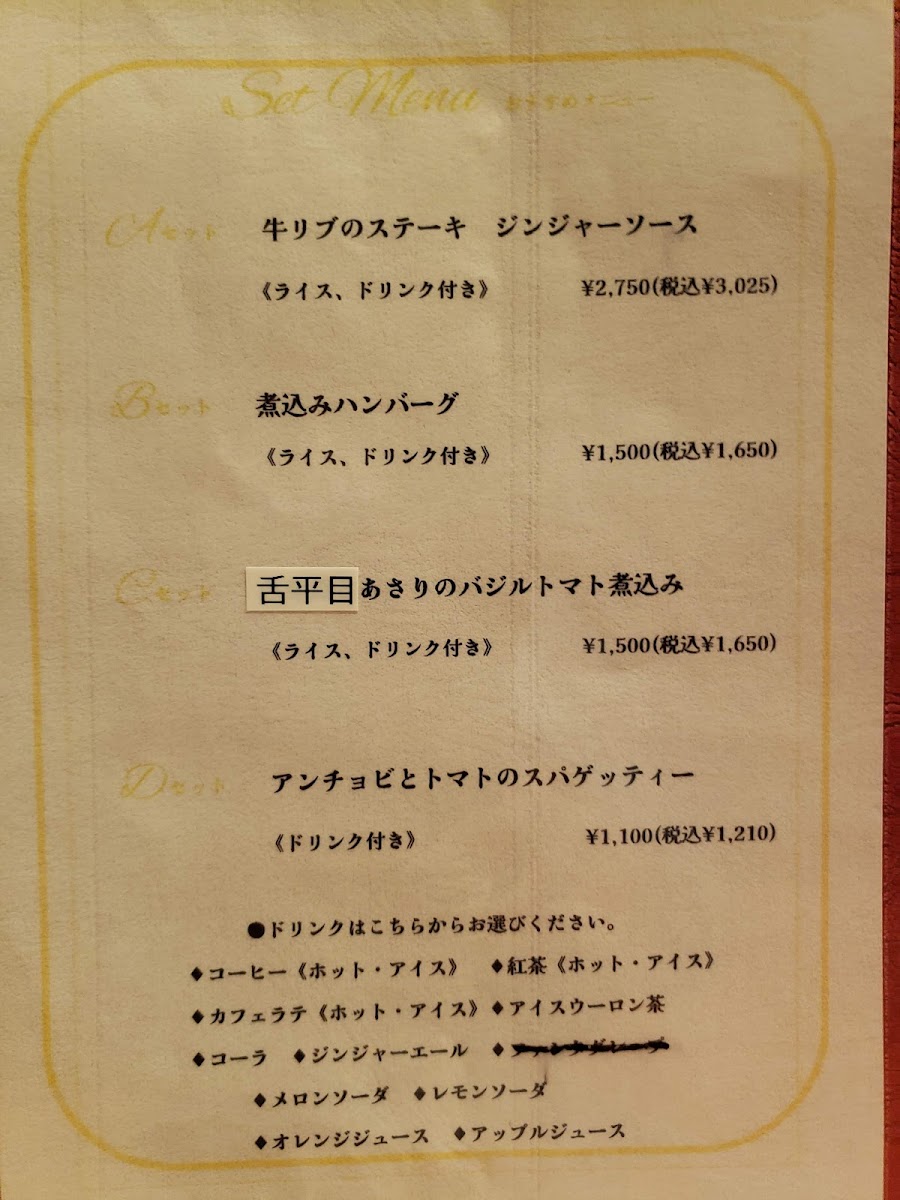 Set Menu おすすめメニュー
Aセット 牛リブのステーキ ジンジャーソース
《ライス、ドリンク付き》 ¥2,750(税込¥3,025)
Bセット 煮込みハンバーグ
《ライス、ドリンク付き》 ¥1,500(税込¥1,650)
Cセット 舌平目あさりのバジルトマト煮込み
《ライス、ドリンク付き》 ¥1,500(税込¥1,650)
Dセット アンチョビとトマトのスパゲッティー
《ドリンク付き》 ¥1,100(税込¥1,210)
●ドリンクはこちらからお選びください。
♦コーヒー《ホット・アイス》 ♦紅茶《ホット・アイス》
♦カフェラテ《ホット・アイス》♦アイスウーロン茶
♦コーラ ♦ジンジャーエール ♦
♦メロンソーダ ♦レモンソーダ
♦オレンジジュース ♦アップルジュース